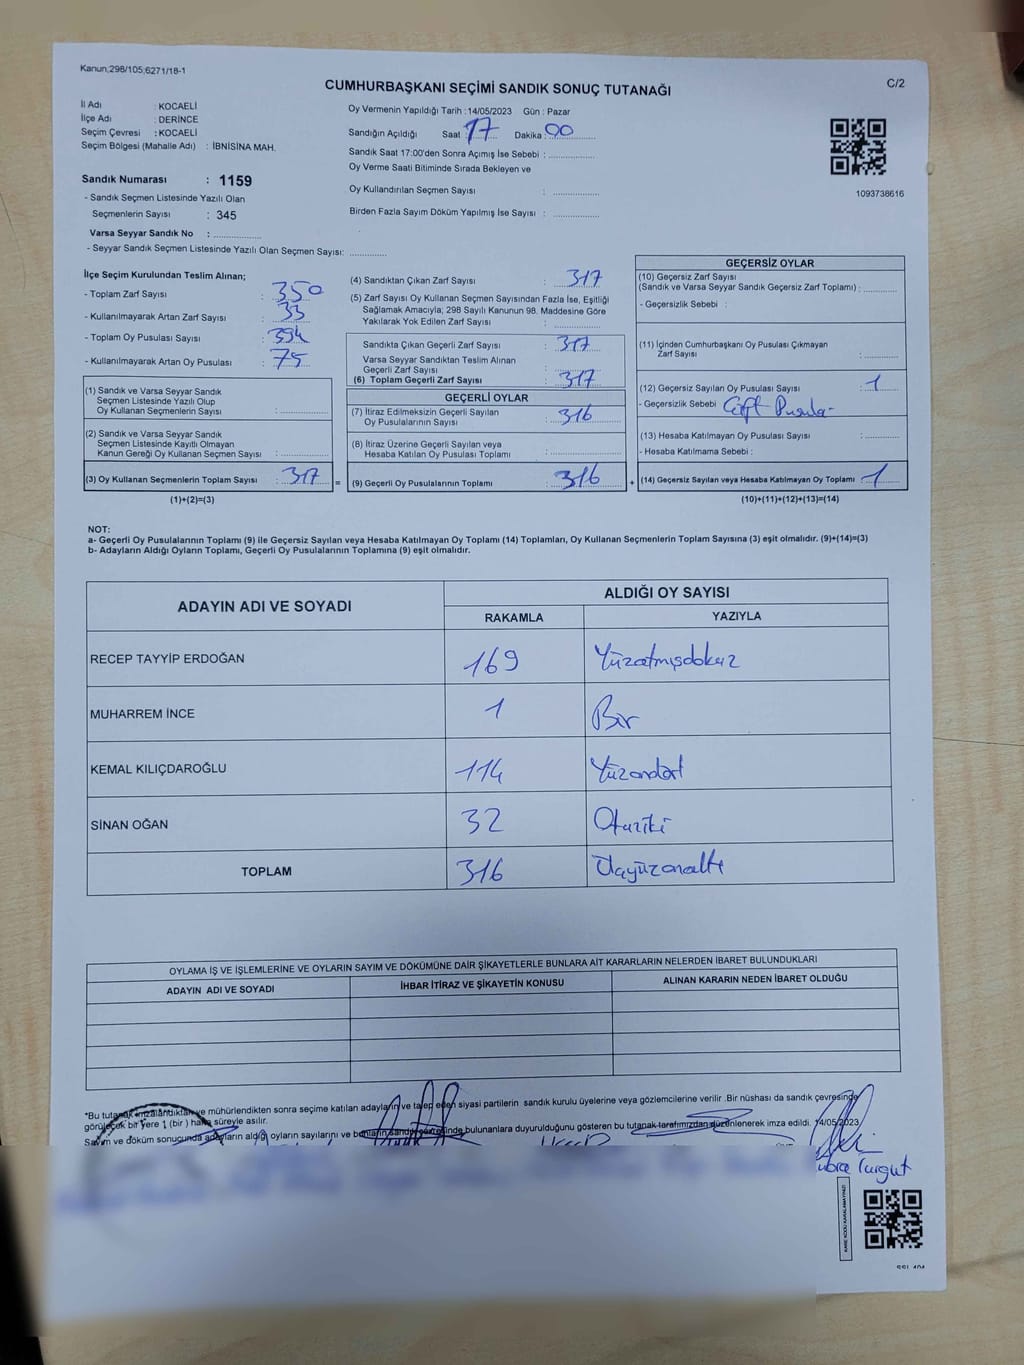 Kanun;298/105;6271/18-1
CUMHURBAŞKANI SEÇİMİ SANDIK SONUÇ TUTANAĞI
C/2
İl Adı : KOCAELİ
İlçe Adı : DERİNCE
Seçim Çevresi : KOCAELİ
Seçim Bölgesi (Mahalle Adı) : İBNİSİNA MAH.
Sandık Numarası : 1159
- Sandık Seçmen Listesinde Yazılı Olan
Seçmenlerin Sayısı : 345
Varsa Seyyar Sandık No : ..................
- Seyyar Sandık Seçmen Listesinde Yazılı Olan Seçmen Sayısı: ............
Oy Vermenin Yapıldığı Tarih : 14/05/2023 Gün : Pazar
Sandığın Açıldığı Saat : 17 Dakika : 00
Sandık Saat 17:00'den Sonra Açımış İse Sebebi : ...............
Oy Verme Saati Bitiminde Sırada Bekleyen ve
Oy Kullandırılan Seçmen Sayısı : ...............
Birden Fazla Sayım Döküm Yapılmış İse Sayısı : ...............
1093738616
İlçe Seçim Kurulundan Teslim Alınan;
- Toplam Zarf Sayısı : 350
- Kullanılmayarak Artan Zarf Sayısı : 33
- Toplam Oy Pusulası Sayısı : 394
- Kullanılmayarak Artan Oy Pusulası : 75
(1) Sandık ve Varsa Seyyar Sandık
Seçmen Listesinde Yazılı Olup
Oy Kullanan Seçmenlerin Sayısı : ...............
(2) Sandık ve Varsa Seyyar Sandık
Seçmen Listesinde Kayıtlı Olmayan
Kanun Gereği Oy Kullanan Seçmen Sayısı : ...............
(3) Oy Kullanan Seçmenlerin Toplam Sayısı : 317 =
(1)+(2)=(3)
(4) Sandıktan Çıkan Zarf Sayısı : 317
(5) Zarf Sayısı Oy Kullanan Seçmen Sayısından Fazla İse, Eşitliği
Sağlamak Amacıyla; 298 Sayılı Kanunun 98. Maddesine Göre
Yakılarak Yok Edilen Zarf Sayısı : ...............
Sandıkta Çıkan Geçerli Zarf Sayısı : 317
Varsa Seyyar Sandıktan Teslim Alınan
Geçerli Zarf Sayısı : ...............
(6) Toplam Geçerli Zarf Sayısı : 317
GEÇERLİ OYLAR
(7) İtiraz Edilmeksizin Geçerli Sayılan
Oy Pusulalarının Sayısı : 316
(8) İtiraz Üzerine Geçerli Sayılan veya
Hesaba Katılan Oy Pusulası Toplamı : ...............
(9) Geçerli Oy Pusulalarının Toplamı : 316 +
GEÇERSİZ OYLAR
(10) Geçersiz Zarf Sayısı
(Sandık ve Varsa Seyyar Sandık Geçersiz Zarf Toplamı) : ............
- Geçersizlik Sebebi :
(11) İçinden Cumhurbaşkanı Oy Pusulası Çıkmayan
Zarf Sayısı : ............
(12) Geçersiz Sayılan Oy Pusulası Sayısı : 1
- Geçersizlik Sebebi : Çift Pusula-
(13) Hesaba Katılmayan Oy Pusulası Sayısı : ............
- Hesaba Katılmama Sebebi :
(14) Geçersiz Sayılan veya Hesaba Katılmayan Oy Toplamı : 1
(10)+(11)+(12)+(13)=(14)
NOT:
a- Geçerli Oy Pusulalarının Toplamı (9) ile Geçersiz Sayılan veya Hesaba Katılmayan Oy Toplamı (14) Toplamları, Oy Kullanan Seçmenlerin Toplam Sayısına (3) eşit olmalıdır. (9)+(14)=(3)
b- Adayların Aldığı Oyların Toplamı, Geçerli Oy Pusulalarının Toplamına (9) eşit olmalıdır.
ADAYIN ADI VE SOYADI
ALDIĞI OY SAYISI
RAKAMLA YAZIYLA
RECEP TAYYİP ERDOĞAN 169 Yüzatmışdokuz
MUHARREM İNCE 1 Bir
KEMAL KILIÇDAROĞLU 114 Yüzondört
SİNAN OĞAN 32 Otuziki
TOPLAM 316 Üçyüzonaltı
OYLAMA İŞ VE İŞLEMLERİNE VE OYLARIN SAYIM VE DÖKÜMÜNE DAİR ŞİKAYETLERLE BUNLARA AİT KARARLARIN NELERDEN İBARET BULUNDUKLARI
ADAYIN ADI VE SOYADI İHBAR İTİRAZ VE ŞİKAYETİN KONUSU ALINAN KARARIN NEDEN İBARET OLDUĞU
*Bu tutanak imzalandıktan ve mühürlendikten sonra seçime katılan adayların ve talep eden siyasi partilerin sandık kurulu üyelerine veya gözlemcilerine verilir .Bir nüshası da sandık çevresinde
görülecek bir yere 1 (bir ) hafta süreyle asılır.
Sayım ve döküm sonucunda adayların aldığı oyların sayılarını ve bulunanlara duyurulduğunu gösteren bu tutanak tarafımızdan düzenlenerek imza edildi. 14/05/2023
Turgut
KARE KODU KARALAMAYINIZ!